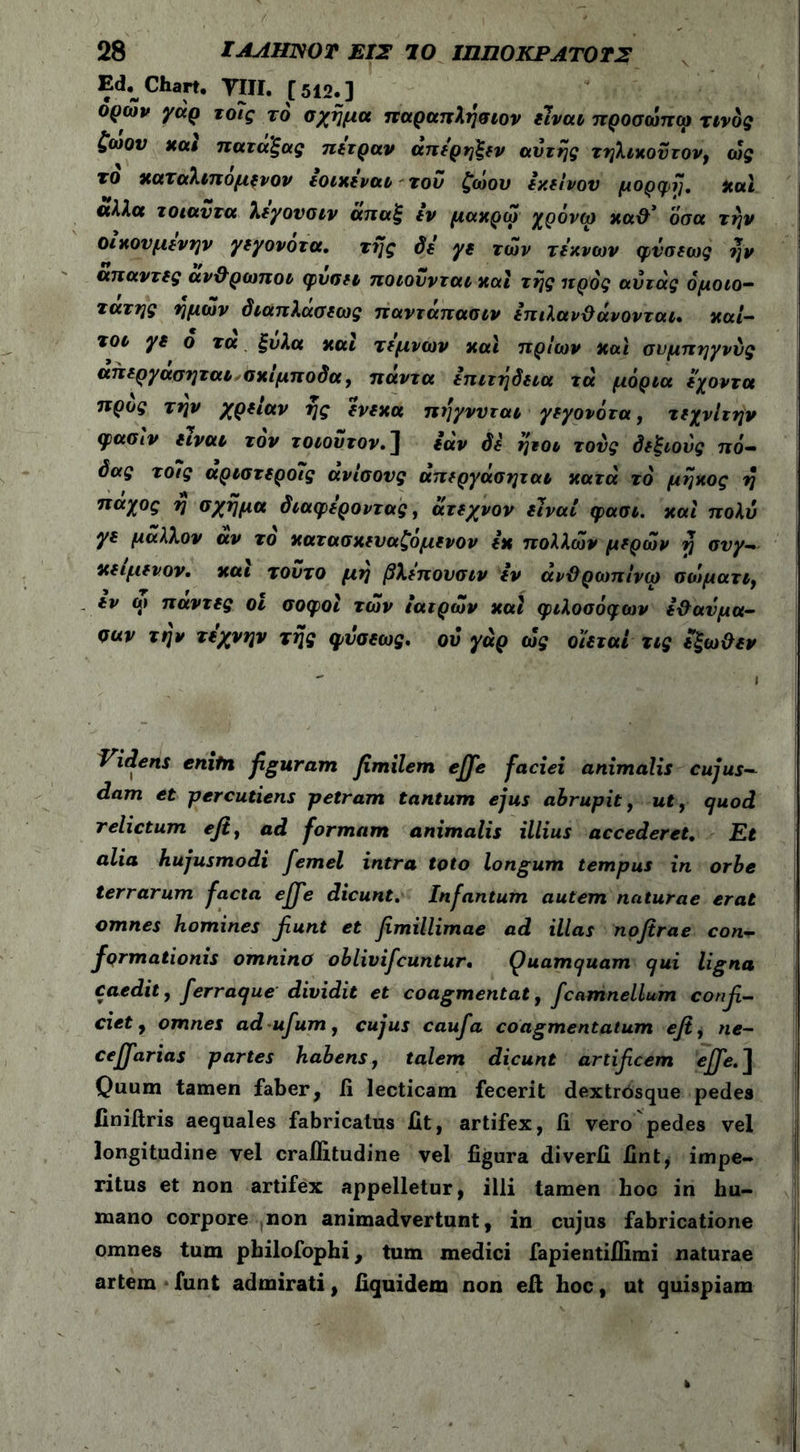 28 ΙΑΛΗΝΟΥ ΕΙΣ ΤΟ ΙΠΠΟΚΡΑΤΟΥΣ
Ed. Chart. VIII. [512.]
ὁρῶν γὰρ τοῖς τὸ σχῆμα παραπλήσιον εἶναι προσώπῳ τινὸς
ζώου καὶ πατάξας πέτραν ἀπέρηξεν αὐτῆς τηλικοῦτον, ὡς
τὸ καταλιπόμενον ἐοικέναι τοῦ ζώου ἐκείνου μορφῇ. καὶ
ἄλλα τοιαῦτα λέγουσιν ἅπαξ ἐν μακρῷ χρόνῳ καθ᾽ ὅσα τὴν
οἰκουμένην γεγονότα. τῆς δέ γε τῶν τέκνων φύσεως ἦν
ἅπαντες ἄνθρωποι φύσει ποιοῦνται καὶ τῆς πρὸς αὐτὰς ὁμοιο-
τάτης ἡμῶν διαπλάσεως παντάπασιν ἐπιλανθάνονται. καί-
τοι γε ὁ τὰ ξύλα καὶ τέμνων καὶ πρίων καὶ συμπηγνὺς
ἀπεργάσηται σκίμποδα, πάντα ἐπιτήδεια τὰ μόρια ἔχοντα
πρὸς τὴν χρείαν ἧς ἕνεκα πήγνυται γεγονότα, τεχνίτην
φασὶν εἶναι τὸν τοιοῦτον.] ἐὰν δὲ ἤτοι τοὺς δεξιοὺς πό-
δας τοῖς ἀριστεροῖς ἀνίσους ἀπεργάσηται κατὰ τὸ μῆκος ἢ
πάχος ἢ σχῆμα διαφέροντας, ἄτεχνον εἶναί φασι. καὶ πολύ
γε μᾶλλον ἂν τὸ κατασκευαζόμενον ἐκ πολλῶν μερῶν ᾖ συγ-
κείμενον. καὶ τοῦτο μὴ βλέπουσιν ἐν ἀνθρωπίνῳ σώματι,
ἐν ᾧ πάντες οἱ σοφοὶ τῶν ἰατρῶν καὶ φιλοσόφων ἐθαύμα-
σαν τὴν τέχνην τῆς φύσεως. οὐ γὰρ ὡς οἴεταί τις ἔξωθεν
Videns enim figuram ſimilem eſſe faciei animalis cujus-
dam et percutiens petram tantum ejus abrupit, ut, quod
relictum eſt, ad formam animalis illius accederet. Et
alia hujusmodi ſemel intra toto longum tempus in orbe
terrarum facta eſſe dicunt. Infantum autem naturae erat
omnes homines fiunt et ſimillimae ad illas noſtrae con-
formationis omnino obliviſcuntur. Quamquam qui ligna
caedit, ſerraque dividit et coagmentat, ſcamnellum confi-
ciet, omnes ad uſum, cujus cauſa coagmentatum eſt, ne-
ceſſarias partes habens, talem dicunt artificem eſſe.]
Quum tamen faber, ſi lecticam fecerit dextrosque pedes
ſiniſtris aequales fabricatus ſit, artifex, ſi vero pedes vel
longitudine vel craſſitudine vel figura diverſi ſint, impe-
ritus et non artifex appelletur, illi tamen hoc in hu-
mano corpore non animadvertunt, in cujus fabricatione
omnes tum philoſophi, tum medici ſapientiſſimi naturae
artem ſunt admirati, ſiquidem non eſt hoc, ut quispiam